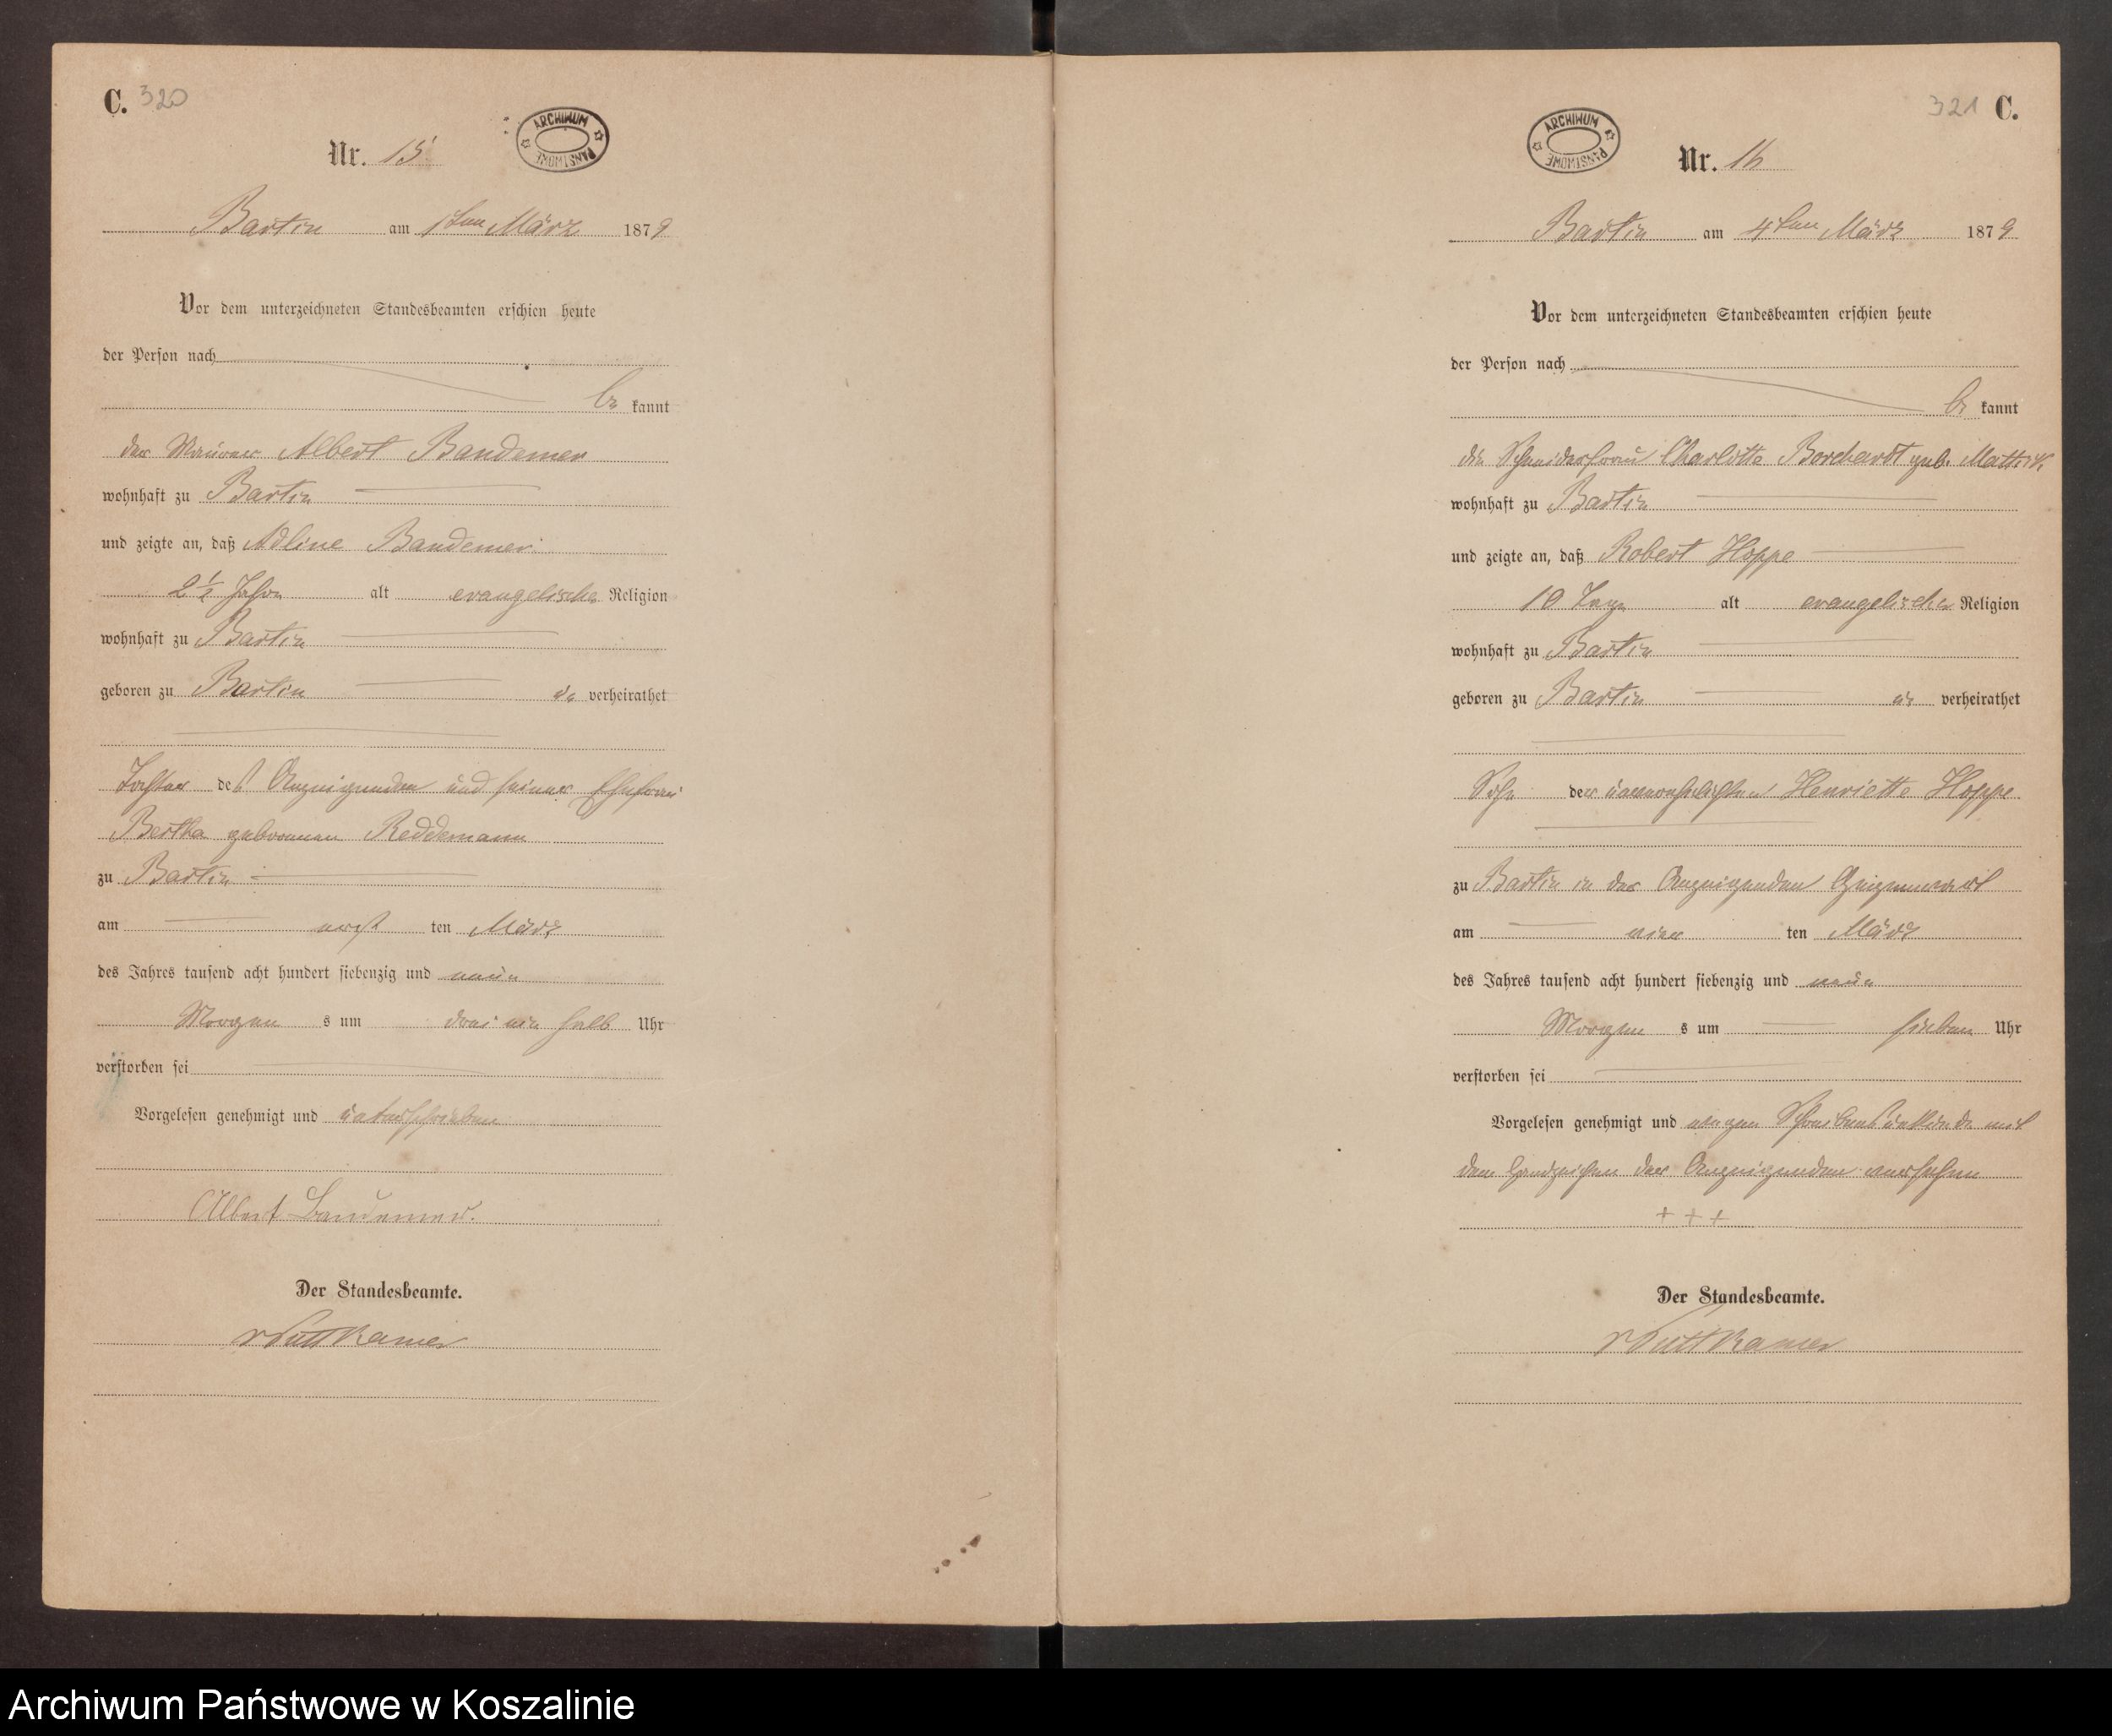 C. 320
ARCHIWUM PAŃSTWOWE
Nr. 15
Bartin am 1ten März 1879
Vor dem unterzeichneten Standesbeamten erschien heute
der Person nach
be kannt
der Maurer Albert Bandemer
wohnhaft zu Bartin
und zeigte an, daß Adline Bandemer
2½ Jahre alt evangelischer Religion
wohnhaft zu Bartin
geboren zu Bartin verheirathet
Tochter des Anzeigenden und seiner Ehefrau
Bertha geborenen Reddemann
zu Bartin
am erst ten März
des Jahres tausend acht hundert siebenzig und neun
Morgen s um drei ein halb Uhr
verstorben sei
Vorgelesen genehmigt und unterschrieben
Albert Bandemer.
Der Standesbeamte.
vPuttkamer
321 C.
ARCHIWUM PAŃSTWOWE
Nr. 16
Bartin am 4ten März 1879
Vor dem unterzeichneten Standesbeamten erschien heute
der Person nach
be kannt
die Schneiderfrau Charlotte Borchardt geb. Mattik
wohnhaft zu Bartin
und zeigte an, daß Robert Hoppe
10 Tage alt evangelischer Religion
wohnhaft zu Bartin
geboren zu Bartin verheirathet
Sohn der unverehelichten Henriette Hoppe
zu Bartin in der Anzeigenden Gegenwart
am vier ten März
des Jahres tausend acht hundert siebenzig und neun
Morgen s um sieben Uhr
verstorben sei
Vorgelesen genehmigt und wegen Schreibensunkunde mit
dem Handzeichen der Anzeigenden versehen
+ + +
Der Standesbeamte.
vPuttkamer
Archiwum Państwowe w Koszalinie